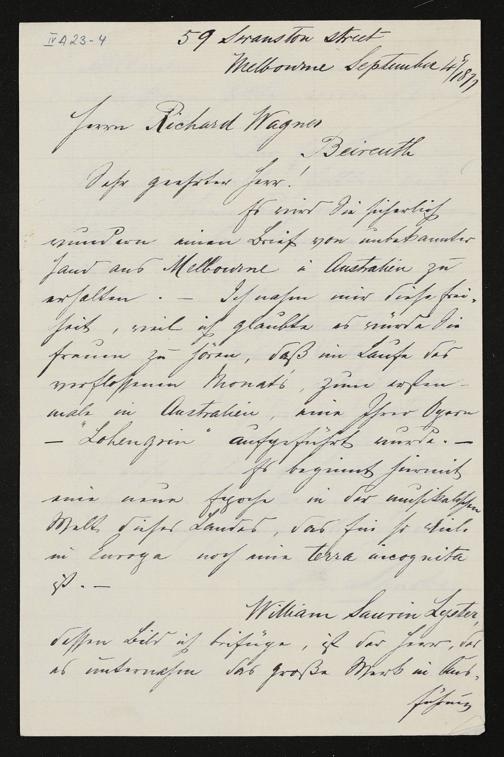 IV A 23-4
59 Swanston street
Melbourne September 4/1877
Herrn Richard Wagner
Beireuth
Sehr geehrter Herr!
Es wird Sie sicherlich
wundern einen Brief von unbekannter
Hand aus Melbourne i Australien zu
erhalten. — Ich nahm mir diese Frei-
heit, weil ich glaubte es würde Sie
freuen zu hören, daß im Laufe des
verflossenen Monats, zum ersten-
male in Australien, eine Ihrer Opern
— "Lohengrin" aufgeführt wurde. —
Es beginnt hiermit
eine neue Epoche in der musikalischen
Welt dieses Landes, das für so Viele
in Europa noch eine terra incognita
ist. —
William Saurin Lyster,
dessen Bild ich beifüge, ist der Herr, der
es unternahm das große Werk in Aus-
führung